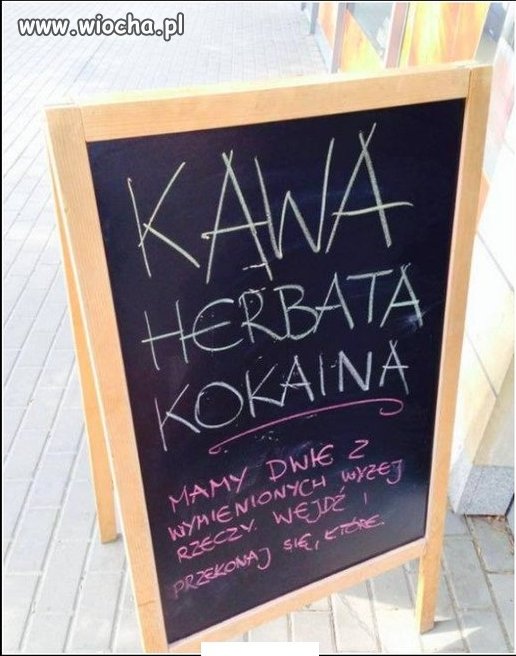 www.wiocha.pl
KAWA
HERBATA
KOKAINA
MAMY DWIE Z
WYMIENIONYCH WYŻEJ
RZECZY. WEJDŹ I
PRZEKONAJ SIĘ, KTÓRE.